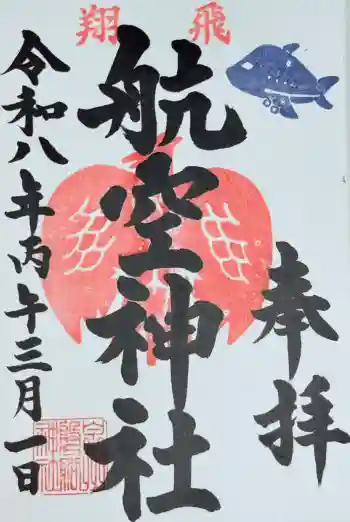 飛翔
奉拝
航空神社
令和八年丙午三月一日